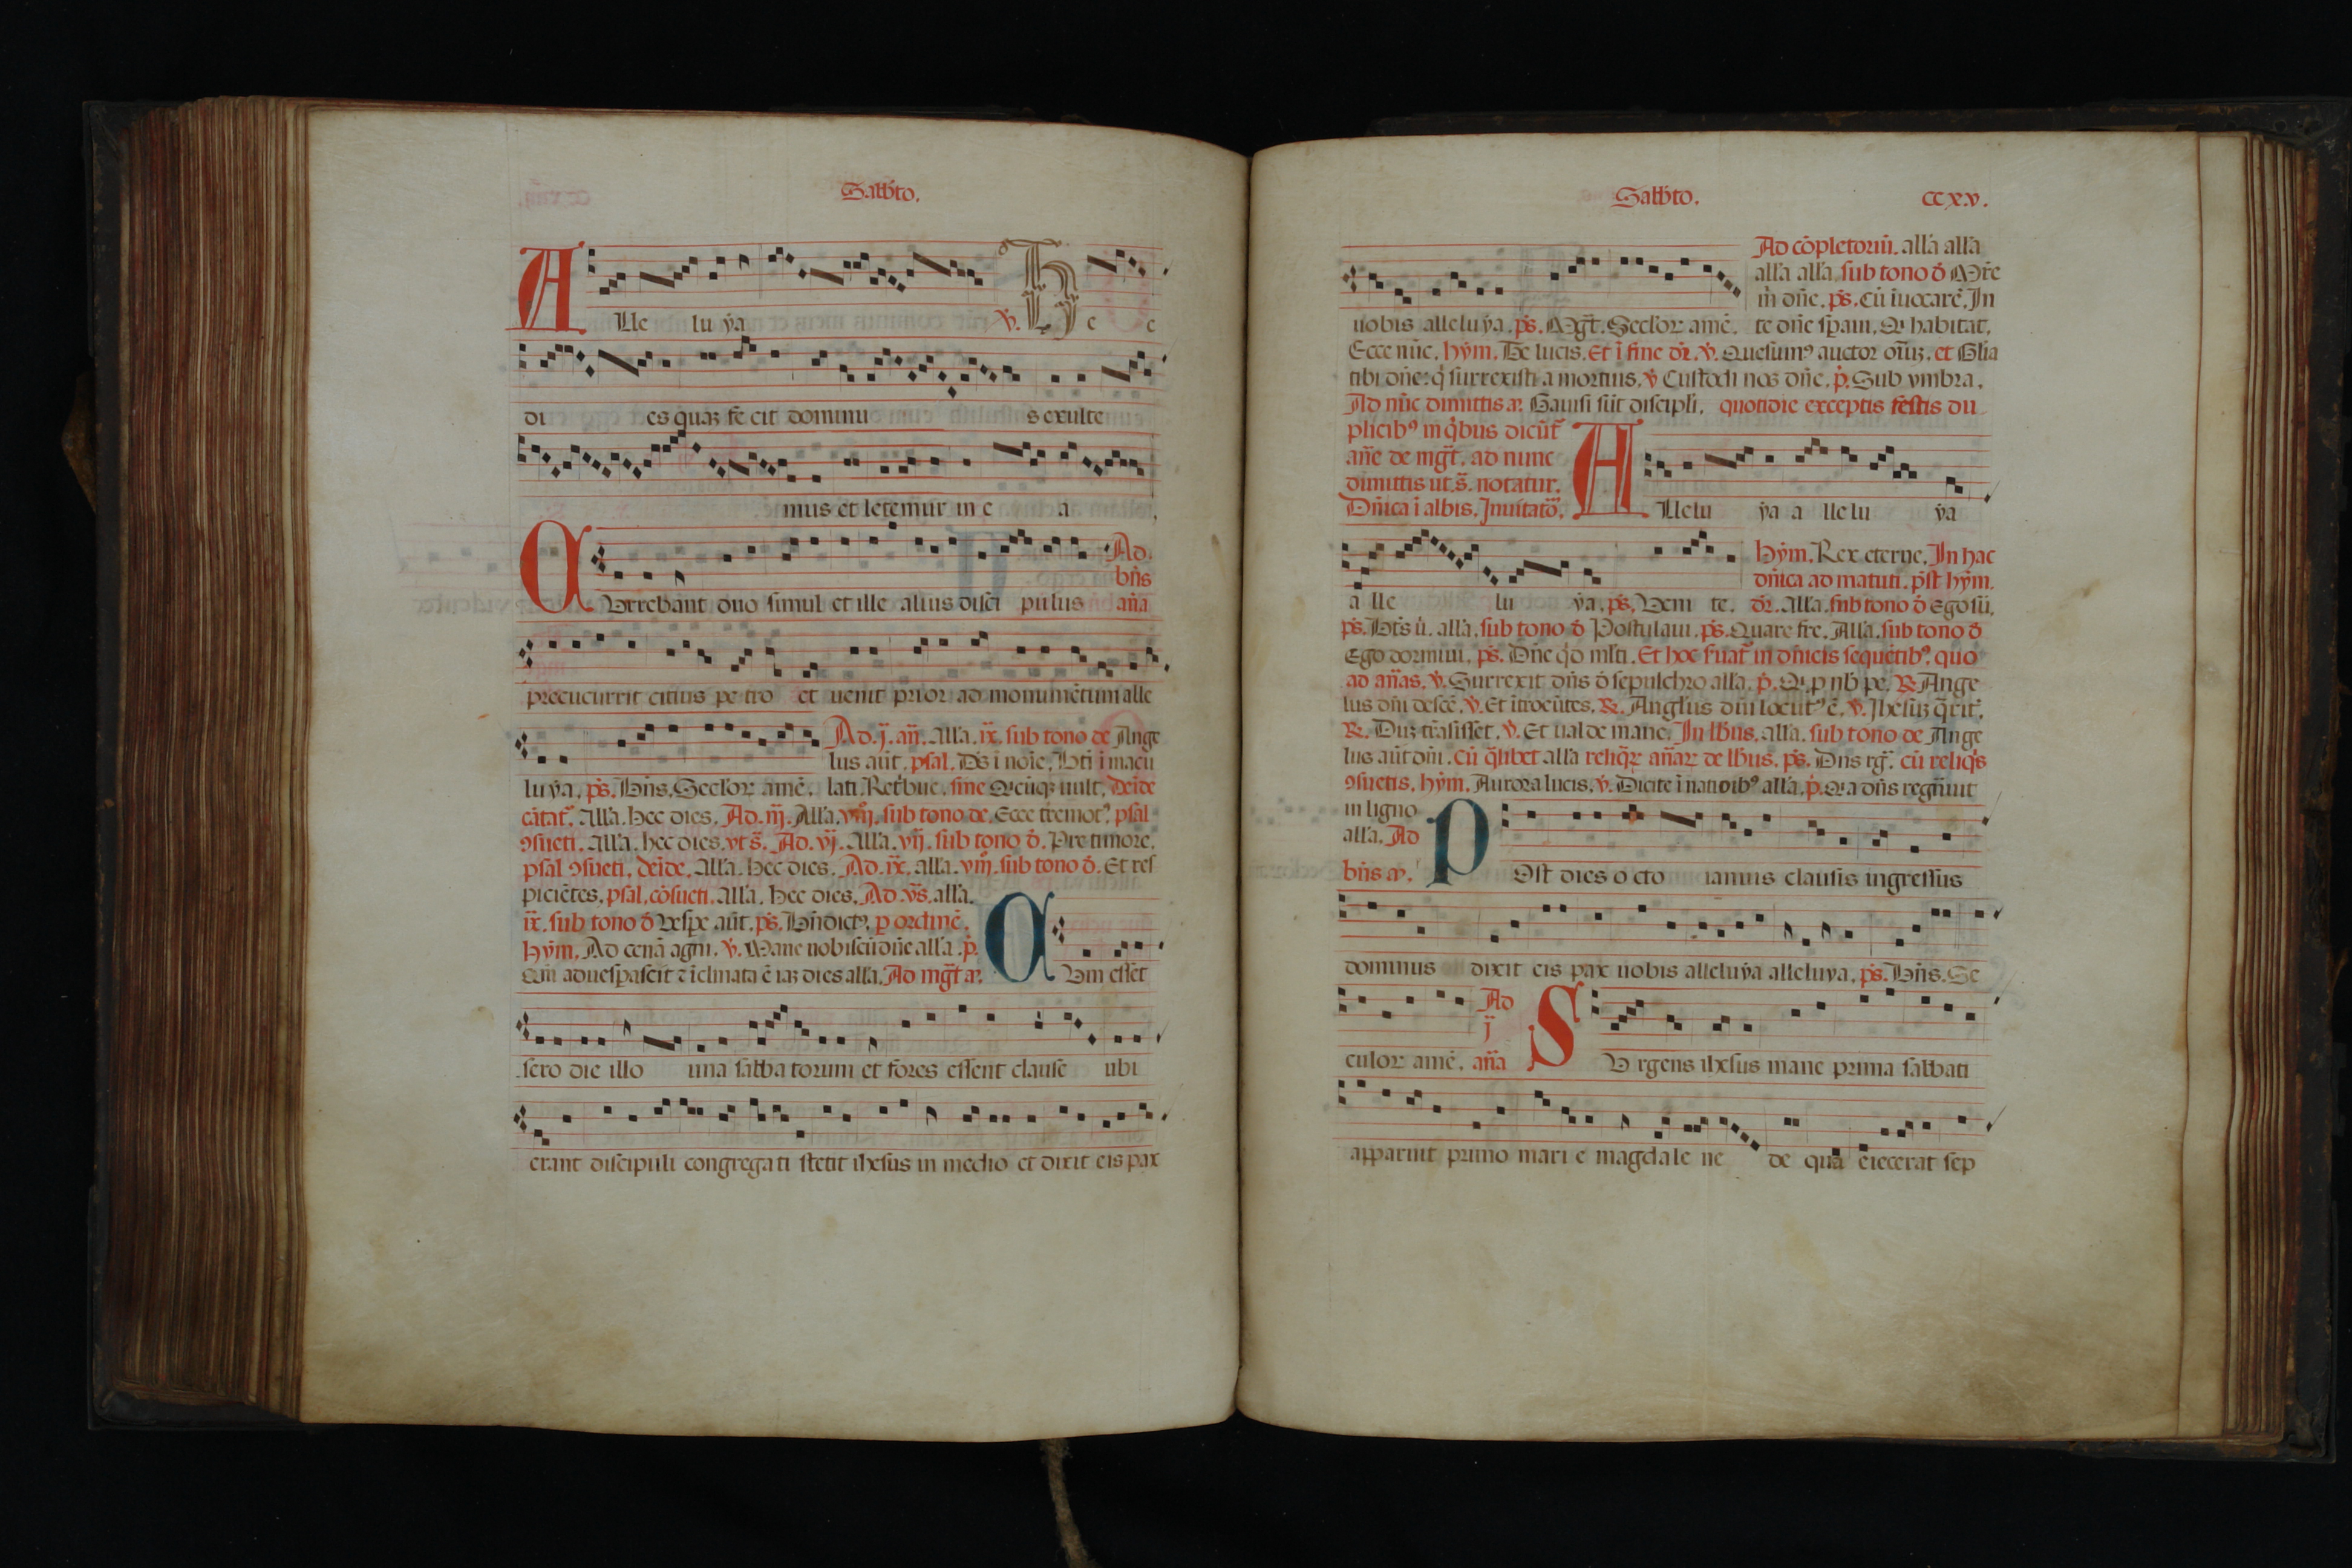 Sabb̃to.
Alle lu ẏa ℣. Hec e
di es quaʒ fe cit dominu s exulte
mus et letemur in e a
Currebant duo simul et ille alius disci pulus Ad. bñs aña
precucurrit citius pe tro et uenit prior ad monumẽtum alle
Ad .j. añ. Alla. ix. sub tono de Ange
lus aũt. psal.
luẏa, ps̃. Bñs. Seclor amẽ. lati. sine Qcũqʒ uult. deĩde
cãtatʳ. Alla. hec dies. Ad .iij. Alla. viij. sub tono de. Ecce tremotꝰ. psal
ꝯsueti. Alla. hec dies. vt s̃. Ad .vj. Alla. vij. sub tono ð. Pre timore.
psal ꝯsueti. deĩde. Alla. hec dies. Ad .ix. alla. viij. sub tono ð. Et res
piciẽtes. psal. cõsueti. alla. hec dies. Ad .vs̃. alla.
ix. sub tono ð Vesp̃e aũt. ps̃. Bñdictꝰ. p ordinẽ.
hẏm. Ad cenã agni. ℣. Mane nobiscũ dñe alla. p̃.
Qm̃ aduesp̃ascit ⁊ ĩclinata ẽ iaʒ dies alla. Ad mg̃t a. Cum esset
sero die illo una sabba torum et fores essent clause ubi
erant discipuli congregati stetit ihesus in medio et dixit eis pax
Sabb̃to. ccxxv.
Ad cõpletoriũ. alla alla
alla alla sub tono ð
m̃ dñe. ps̃. Cũ ĩuocarẽ. In
uobis alleluẏa. ps̃. Mg̃t. Seclor amẽ. te dñe sp̃aui. Q habitat.
Ecce nũc. hẏm. De lucis. Et ĩ fine dr̃. ℣. Quesumꝰ auctor oĩuʒ. et Glia
tibi dñe: q̃ surrexisti a mortuis. ℣ Custodi nos dñe. p̃. Sub vmbra.
Ad nũc dimittis a. Gauisi sũt discipli. quotidie exceptis festis du
plicibꝰ in q̃bus dicũtʳ
añe de mg̃t. ad nunc
dimittis ut s̃. notatur.
Dñica ĩ albis. Inuitatõ. Allelu ẏa a lle lu ẏa
hẏm. Rex eterne. In hac
dñica ad matuti. põst hẏm.
a lle lu ẏa. ps̃. Veni te. dr̃. Alla. sub tono ð Ego sũ.
ps̃. Bt̃s ũ. alla. sub tono ð Postulaui. ps̃. Quare fre. Alla. sub tono ð
Ego dormiui. ps̃. Dñe q̃d ml̃ti. Et hoc ẽuatʳ in dñicis sequẽtibꝰ. quo
ad añas. ℣. Surrexit dñs ð sepulchro alla. p̃. Q. p nb̃ pe. ℟ Ange
lus dñi descẽ. ℣. Et ĩtroeũtes. ℟. Anglus dñi locutꝰ ẽ. ℣. Ihesuʒ q̃rit.
℟. Duʒ trãsisset. ℣. Et ualde mane. In lb̃us. alla. sub tono de Ange
lus aũt dñi. Cũ q̃libet alla reliq̃r añar de lb̃us. ps̃. Dñs rg̃. cũ reliq̃s
ꝯsuetis. hẏm. Aurora lucis. ℣. Dicite ĩ nationibꝰ alla. p̃. Q a dñs regñuit
in ligno
alla. Ad
bñs a. Post dies o cto ianuis clausis ingressus
dominus dixit eis pax uobis alleluẏa alleluya. ps̃. Bñs. Se
Ad
j̃
culor amẽ. aña Su rgens ihesus mane prima sabbati
apparuit primo mari e magdale ne de qua eiecerat sep